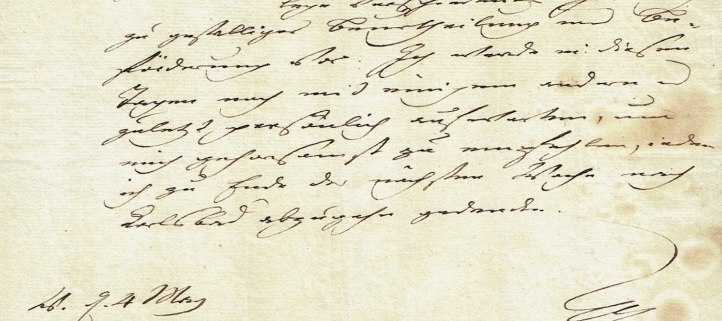 zu gefälliger Beurtheilung und Be-
förderung vor. Ich werde in diesen
Tagen noch mit einigem andern
zuletzt persönlich aufwarten, um
mich gehorsamst zu empfehlen, indem
ich zu Ende der nächsten Woche nach
Karlsbad abzugehn gedenke.
W. d. 4 May